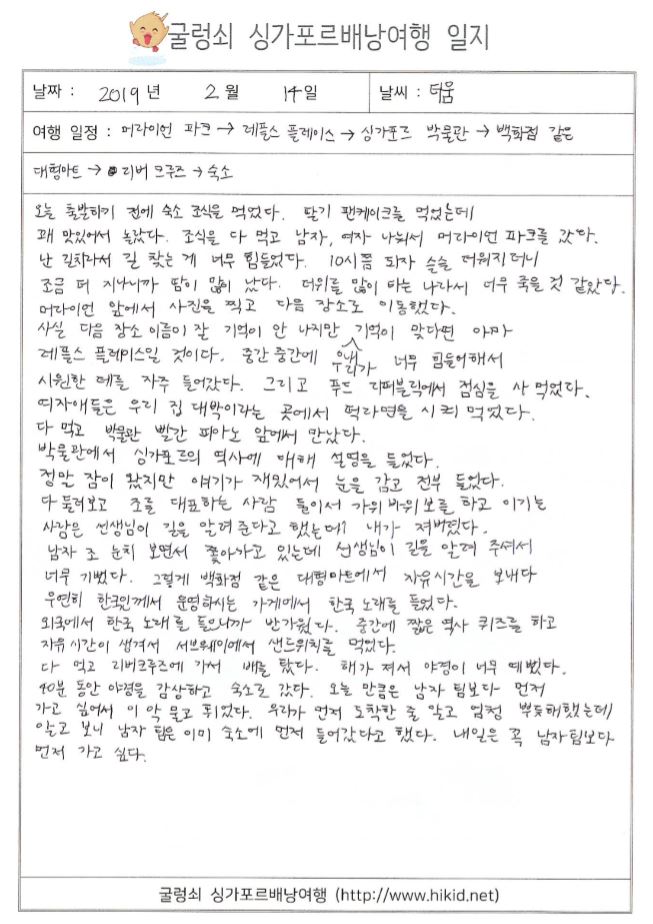 굴렁쇠 싱가포르배낭여행 일지
날짜 : 2019 년 2 월 14 일 날씨 : 더움
여행 일정 : 머라이언 파크 → 레플스 플레이스 → 싱가포르 박물관 → 백화점 같은
대형마트 → 리버 크루즈 → 숙소
오늘 출발하기 전에 숙소 조식을 먹었다. 딸기 팬케이크를 먹었는데
꽤 맛있어서 놀랐다. 조식을 다 먹고 남자, 여자 나눠서 머라이언 파크를 갔다.
난 길치라서 길 찾는 게 너무 힘들었다. 10시쯤 되자 슬슬 더워지더니
조금 더 지나니까 땀이 많이 났다. 더위를 많이 타는 나라서 너무 죽을 것 같았다.
머라이언 앞에서 사진을 찍고 다음 장소로 이동했다.
사실 다음 장소 이름이 잘 기억이 안 나지만 기억이 맞다면 아마
레플스 플레이스일 것이다. 중간중간에 우리가 너무 힘들어해서
시원한 데를 자주 들어갔다. 그리고 푸드 리퍼블릭에서 점심을 사 먹었다.
여자애들은 우리 집 대박이라는 곳에서 떡라면을 시켜 먹었다.
다 먹고 박물관 빨간 피아노 앞에서 만났다.
박물관에서 싱가포르의 역사에 대해 설명을 들었다.
정말 잠이 왔지만 얘기가 재밌어서 눈을 감고 전부 들었다.
다 둘러보고 조를 대표하는 사람 둘이서 가위바위보를 하고 이기는
사람은 선생님이 길을 알려 준다고 했는데 내가 져버렸다.
남자 조 눈치 보면서 쫓아가고 있는데 선생님이 길을 알려 주셔서
너무 기뻤다. 그렇게 백화점 같은 대형마트에서 자유시간을 보내다
우연히 한국인께서 운영하시는 가게에서 한국 노래를 들었다.
외국에서 한국 노래를 들으니까 반가웠다. 중간에 짧은 역사 퀴즈를 하고
자유시간이 생겨서 서브웨이에서 샌드위치를 먹었다.
다 먹고 리버크루즈에 가서 배를 탔다. 해가 져서 야경이 너무 예뻤다.
40분 동안 야경을 감상하고 숙소로 갔다. 오늘 만큼은 남자 팀보다 먼저
가고 싶어서 이 악 물고 뛰었다. 우리가 먼저 도착한 줄 알고 엄청 뿌듯해했는데
알고 보니 남자 팀은 이미 숙소에 먼저 들어갔다고 했다. 내일은 꼭 남자팀보다
먼저 가고 싶다.
굴렁쇠 싱가포르배낭여행 (http://www.hikid.net)